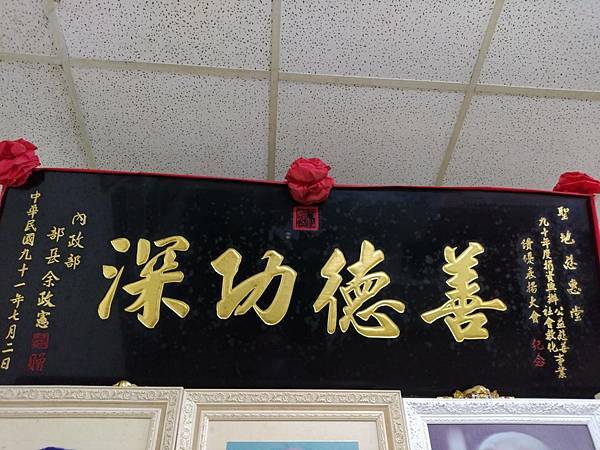 聖地慈惠堂
九十年度捐資興辦公益慈善事業
社會教化
績優表揚大會 紀念
善德功深
內政部
部長余政憲 贈
中華民國九十一年七月二日